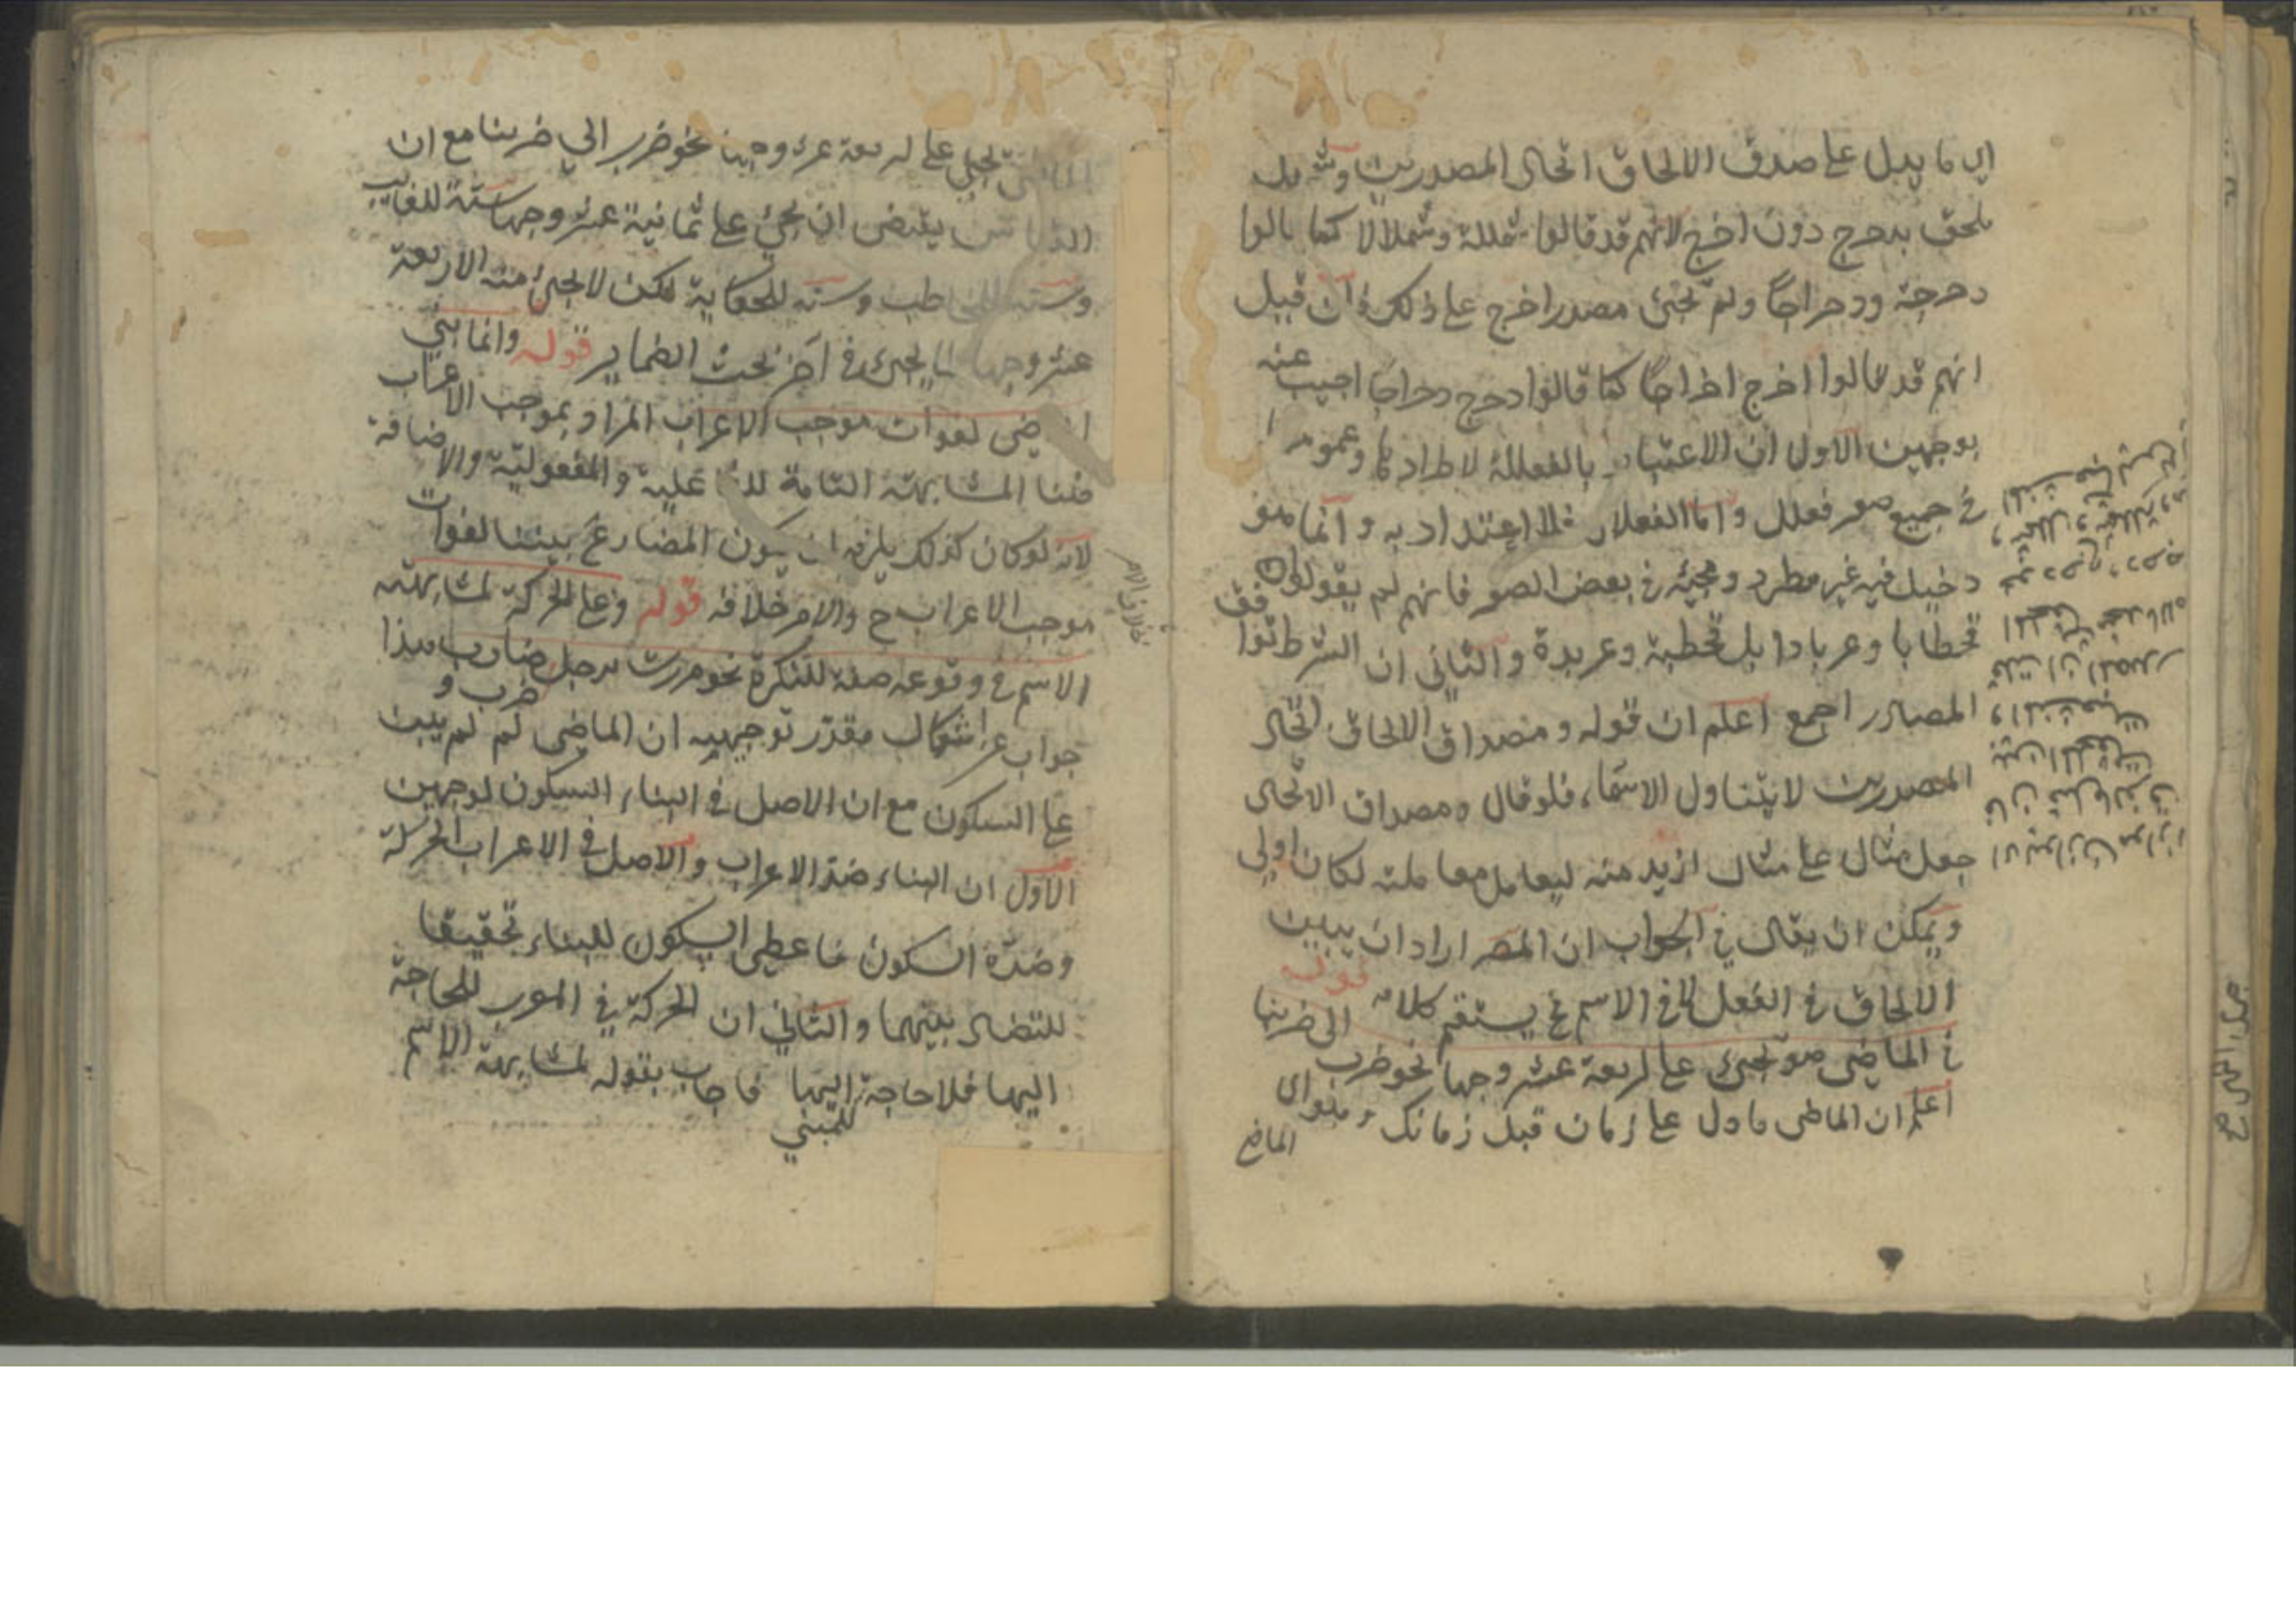 اي ما يدل على صدق الالحاق اتحاد المصدرين وشملل
ملحق بدحرج دون اخرج لانهم قد قالوا شمللة وشملالا كما قالوا
دحرجة ودحراجا ولم يجئ مصدر اخرج على ذلك فان قيل
انهم قد قالوا اخرج اخراجا كما قالوا دحرج دحراجا اجيب عنه
بوجهين الاول ان الاعتبار بالفعللة لاطرادها وعمومها
في جميع صور فعلل واما الفعلال فلا اعتداد به وانما هو
دخيل فيه غير مطرد ومجيئه في بعض الصور فانهم لم يقولوا
قحطابا وعربادا بل قحطبة وعربدة والثاني ان الشرط توافق
المصادر اجمع اعلم ان قوله ومصداق الالحاق اتحاد
المصدرين لا يتناول الاسماء فلو قال ومصداق الاتحاد
جعل مثال على مثال ازيد منه ليعامل معاملته لكان اولى
ويمكن ان يقال في الجواب ان المص اراد ان يبين
الالحاق في الفعل لا في الاسم يستقيم كلامه قوله
في الماضي هو يجيئ على اربعة عشر وجها نحو ضرب الى ضربنا
اعلم ان الماضي ما دل على زمان قبل زمانك وهو اى
الماضي
الماضي يجيئ على اربعة عشر وجها نحو ضرب الى ضربنا مع ان
القياس يقتضى ان يجيئ على ثمانية عشر وجها ستة للغايب
وستة للمخاطب وستة للحكاية لكن لا يجيئ منه الا اربعة
عشر وجها لما يجيئ في آخر بحث الضماير قوله وانما بني
الماضي لفوات موجب الاعراب المراد بموجب الاعراب
هنا المشابهة التامة للفاعلية والمفعولية والاضافة
لانه لو كان كذلك يلزم ان يكون المضارع مبنيا لفوات
موجب الاعراب ح والامر خلافه قوله وعلى الحركة لمشابهته
الاسم في وقوعه صفة للنكرة نحو مررت برجل ضارب هذا
ضرب و
جواب عن اشكال مقدر توجيهه ان الماضي لم لم يبن
على السكون مع ان الاصل في البناء السكون لوجهين
الاول ان البناء ضد الاعراب والاصل في الاعراب الحركة
وضده السكون فاعطى السكون للبناء تحقيقا
للتضاد بينهما والثاني ان الحركة في المعرب للحاجة
اليها فلا حاجة اليها فاجاب بقوله لمشابهة الاسم
للمبني